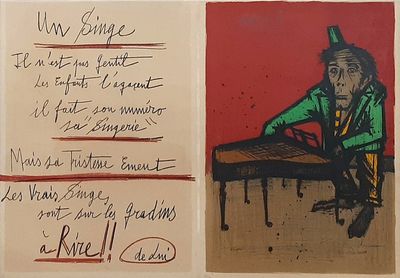 Un Singe
Il n'est pas gentil
Les Enfants l'agacent
il fait son numéro
sa "Singerie"
Mais sa Tristesse Emeut
Les Vrais Singes,
sont sur les gradins
à Rire!!
de Lui